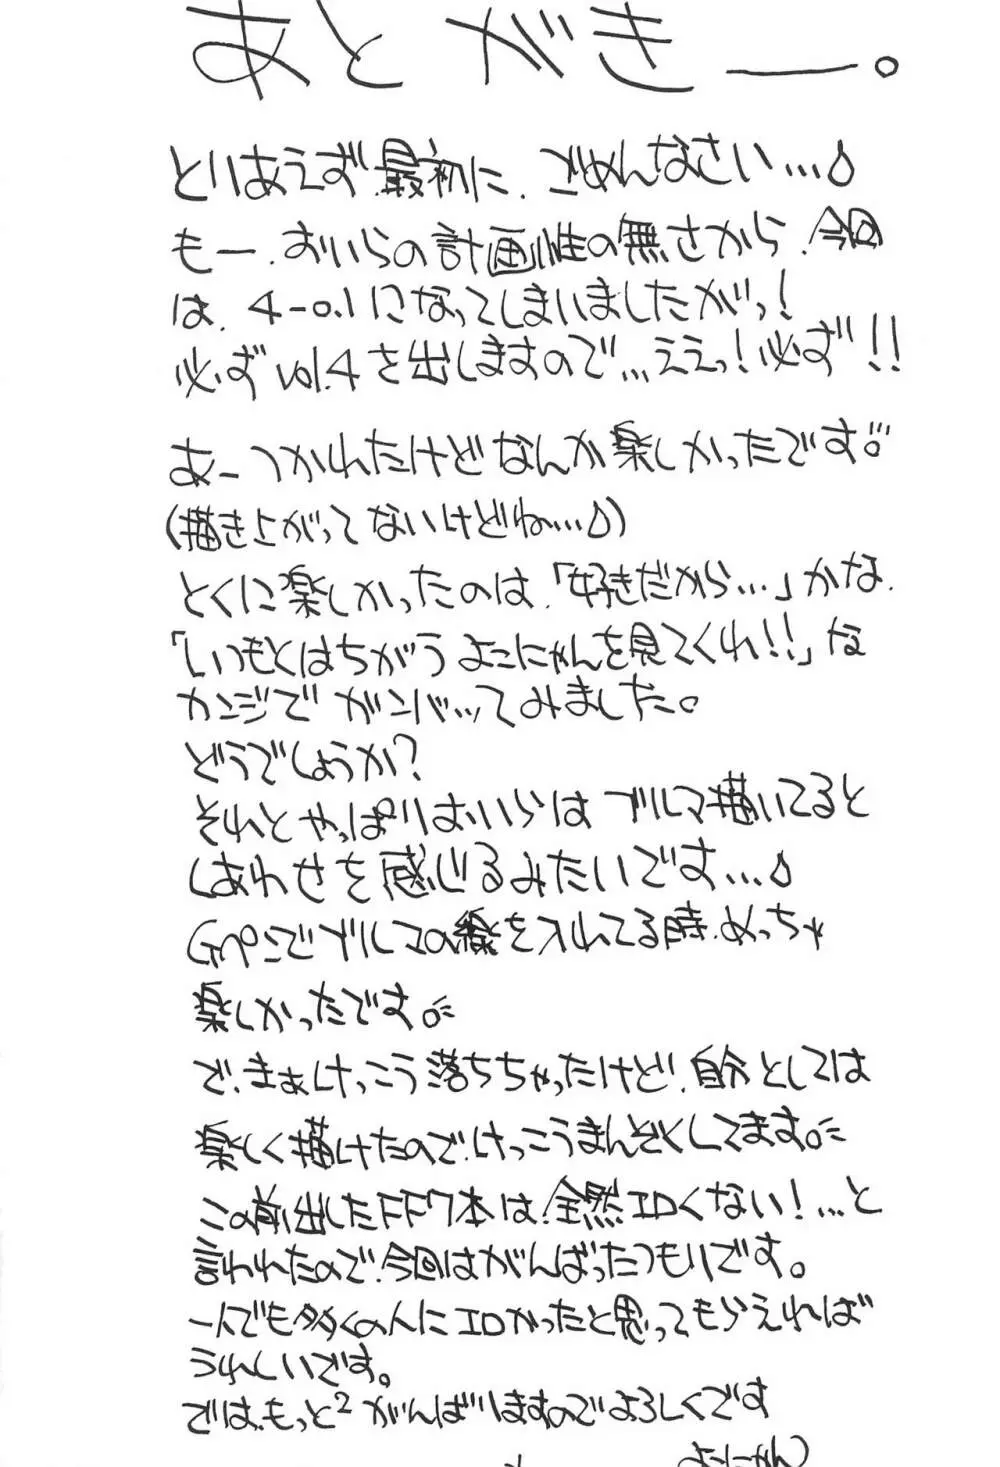 あとがきー。
とりあえず、最初に、ごめんなさい…
もー、おいらの計画性の無さから、今回
は、4-0.1になってしまいましたがっ！
必ずvol.4を出しますので…ええっ！必ず!!
あーつかれたけどなんか楽しかったです。
(描き上がってないけどね…)
とくに楽しかったのは、「好きだから…」かな、
「いつもとはちがうよこにゃんを見てくれ!!」な
カンジでガンバッてみました。
どうでしょうか？
それとやっぱりおいらはブルマ描いてると
しあわせを感じるみたいです…
Gペンでブルマの線を入れてる時、めっちゃ
楽しかったです。
で、まぁけっこう落ちちゃったけど、自分としては
楽しく描けたので、けっこうまんぞくしてます。
この前出したFF7本は、全然エロくない！…と
言われたので、今回はがんばったつもりです。
一人でも多くの人にエロかったと思ってもらえれば
うれしいです。
では、もっと²がんばりますのでよろしくです